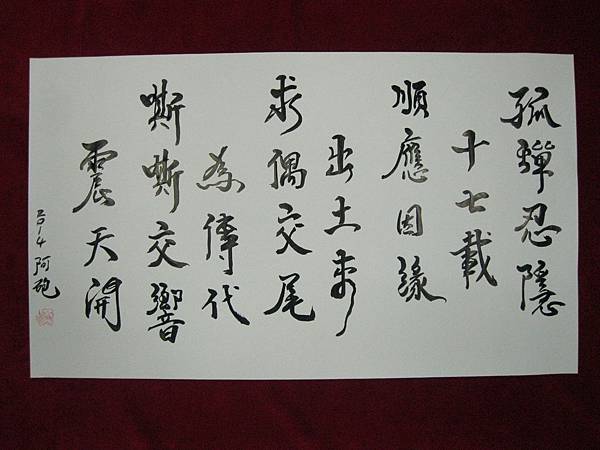 孤蟬忍隱
十七載
順應因緣
出土來
求偶交尾
為傳代
嘶嘶交響
震天開
2014 阿砲